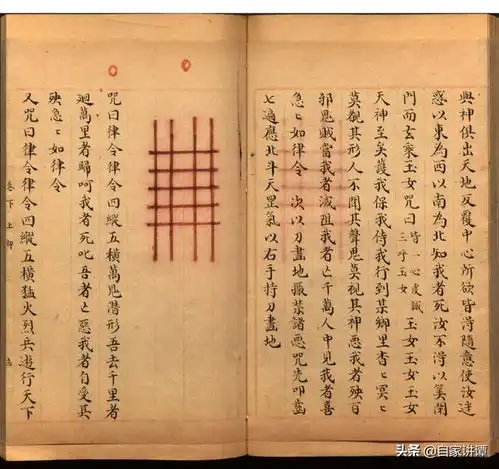 與神俱出天地反覆中心所欲皆得隨意使汝迷
惑以東為西以南為北知我者死汝不得以筭閉
門而玄乘玉女咒曰皆一心虔誠三呼玉女玉女玉女玉女
天神至矣護我保我侍我行到某鄉里杳〻冥〻
莫覩其形人不聞其聲鬼莫視其神惡我者殃百
邪鬼賊當我者滅阻我者亡千萬人中見我者喜
急〻如律令 次以刀畫地攝禁諸惡咒先叩齒
七遍應北斗天罡氣以右手持刀畫地
咒曰律令律令四縱五橫萬鬼潛形吾去千里者
迴萬里者歸呵我者死叱吾者亡惡我者自受其
殃急〻如律令
又咒曰律令律令四縱五橫猛火烈兵遊行天下
卷下
頭条 @自家讲谭